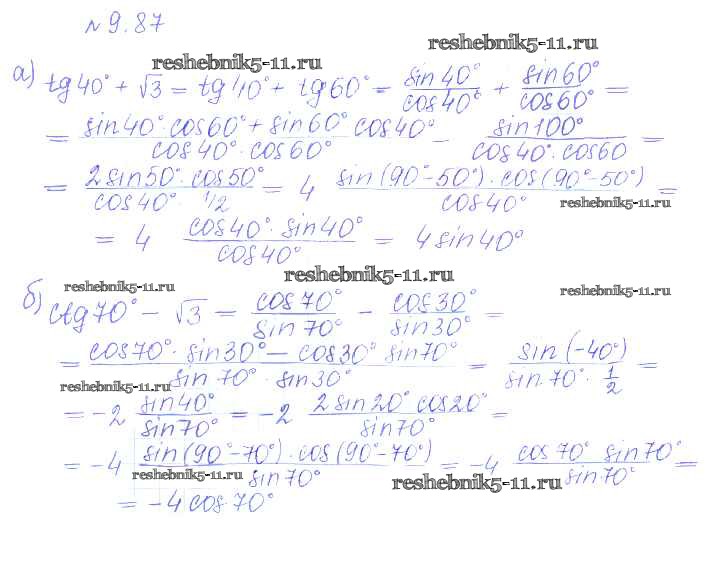 №9.87
reshebnik5-11.ru
reshebnik5-11.ru
а) tg40° + √3 = tg40° + tg60° = sin40°/cos40° + sin60°/cos60° =
= (sin40°·cos60° + sin60° cos40°)/(cos40°·cos60°) = sin100°/(cos40°·cos60) =
= (2sin50°·cos50°)/(cos40°·1/2) = 4 (sin(90°-50°)·cos(90°-50°))/cos40° =
reshebnik5-11.ru
= 4 (cos40°·sin40°)/cos40° = 4sin40°
reshebnik5-11.ru
reshebnik5-11.ru
reshebnik5-11.ru
б) ctg70° - √3 = cos70°/sin70° - cos30°/sin30° =
= (cos70°·sin30° - cos30° sin70°)/(sin70°·sin30°) = sin(-40°)/(sin70°·1/2) =
reshebnik5-11.ru
= -2 sin40°/sin70° = -2 (2sin20° cos20°)/sin70° =
= -4 (sin(90°-70°)·cos(90°-70°))/sin70° = -4 (cos70° sin70°)/sin70° =
reshebnik5-11.ru
reshebnik5-11.ru
= -4cos70°